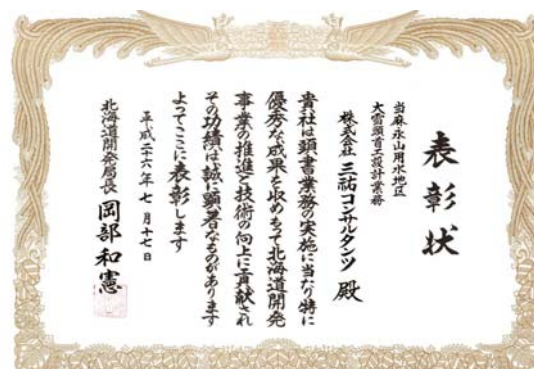 表彰状
当麻永山用水地区
大雪頭首工設計業務
株式会社 三祐コンサルタンツ 殿
貴社は頭書業務の実施に当たり特に
優秀な成果を収めもって北海道開発
事業の推進と技術の向上に貢献され
その功績は誠に顕著なものがあります
よってここに表彰します
平成二十六年七月十七日
北海道開発局長 岡部和憲